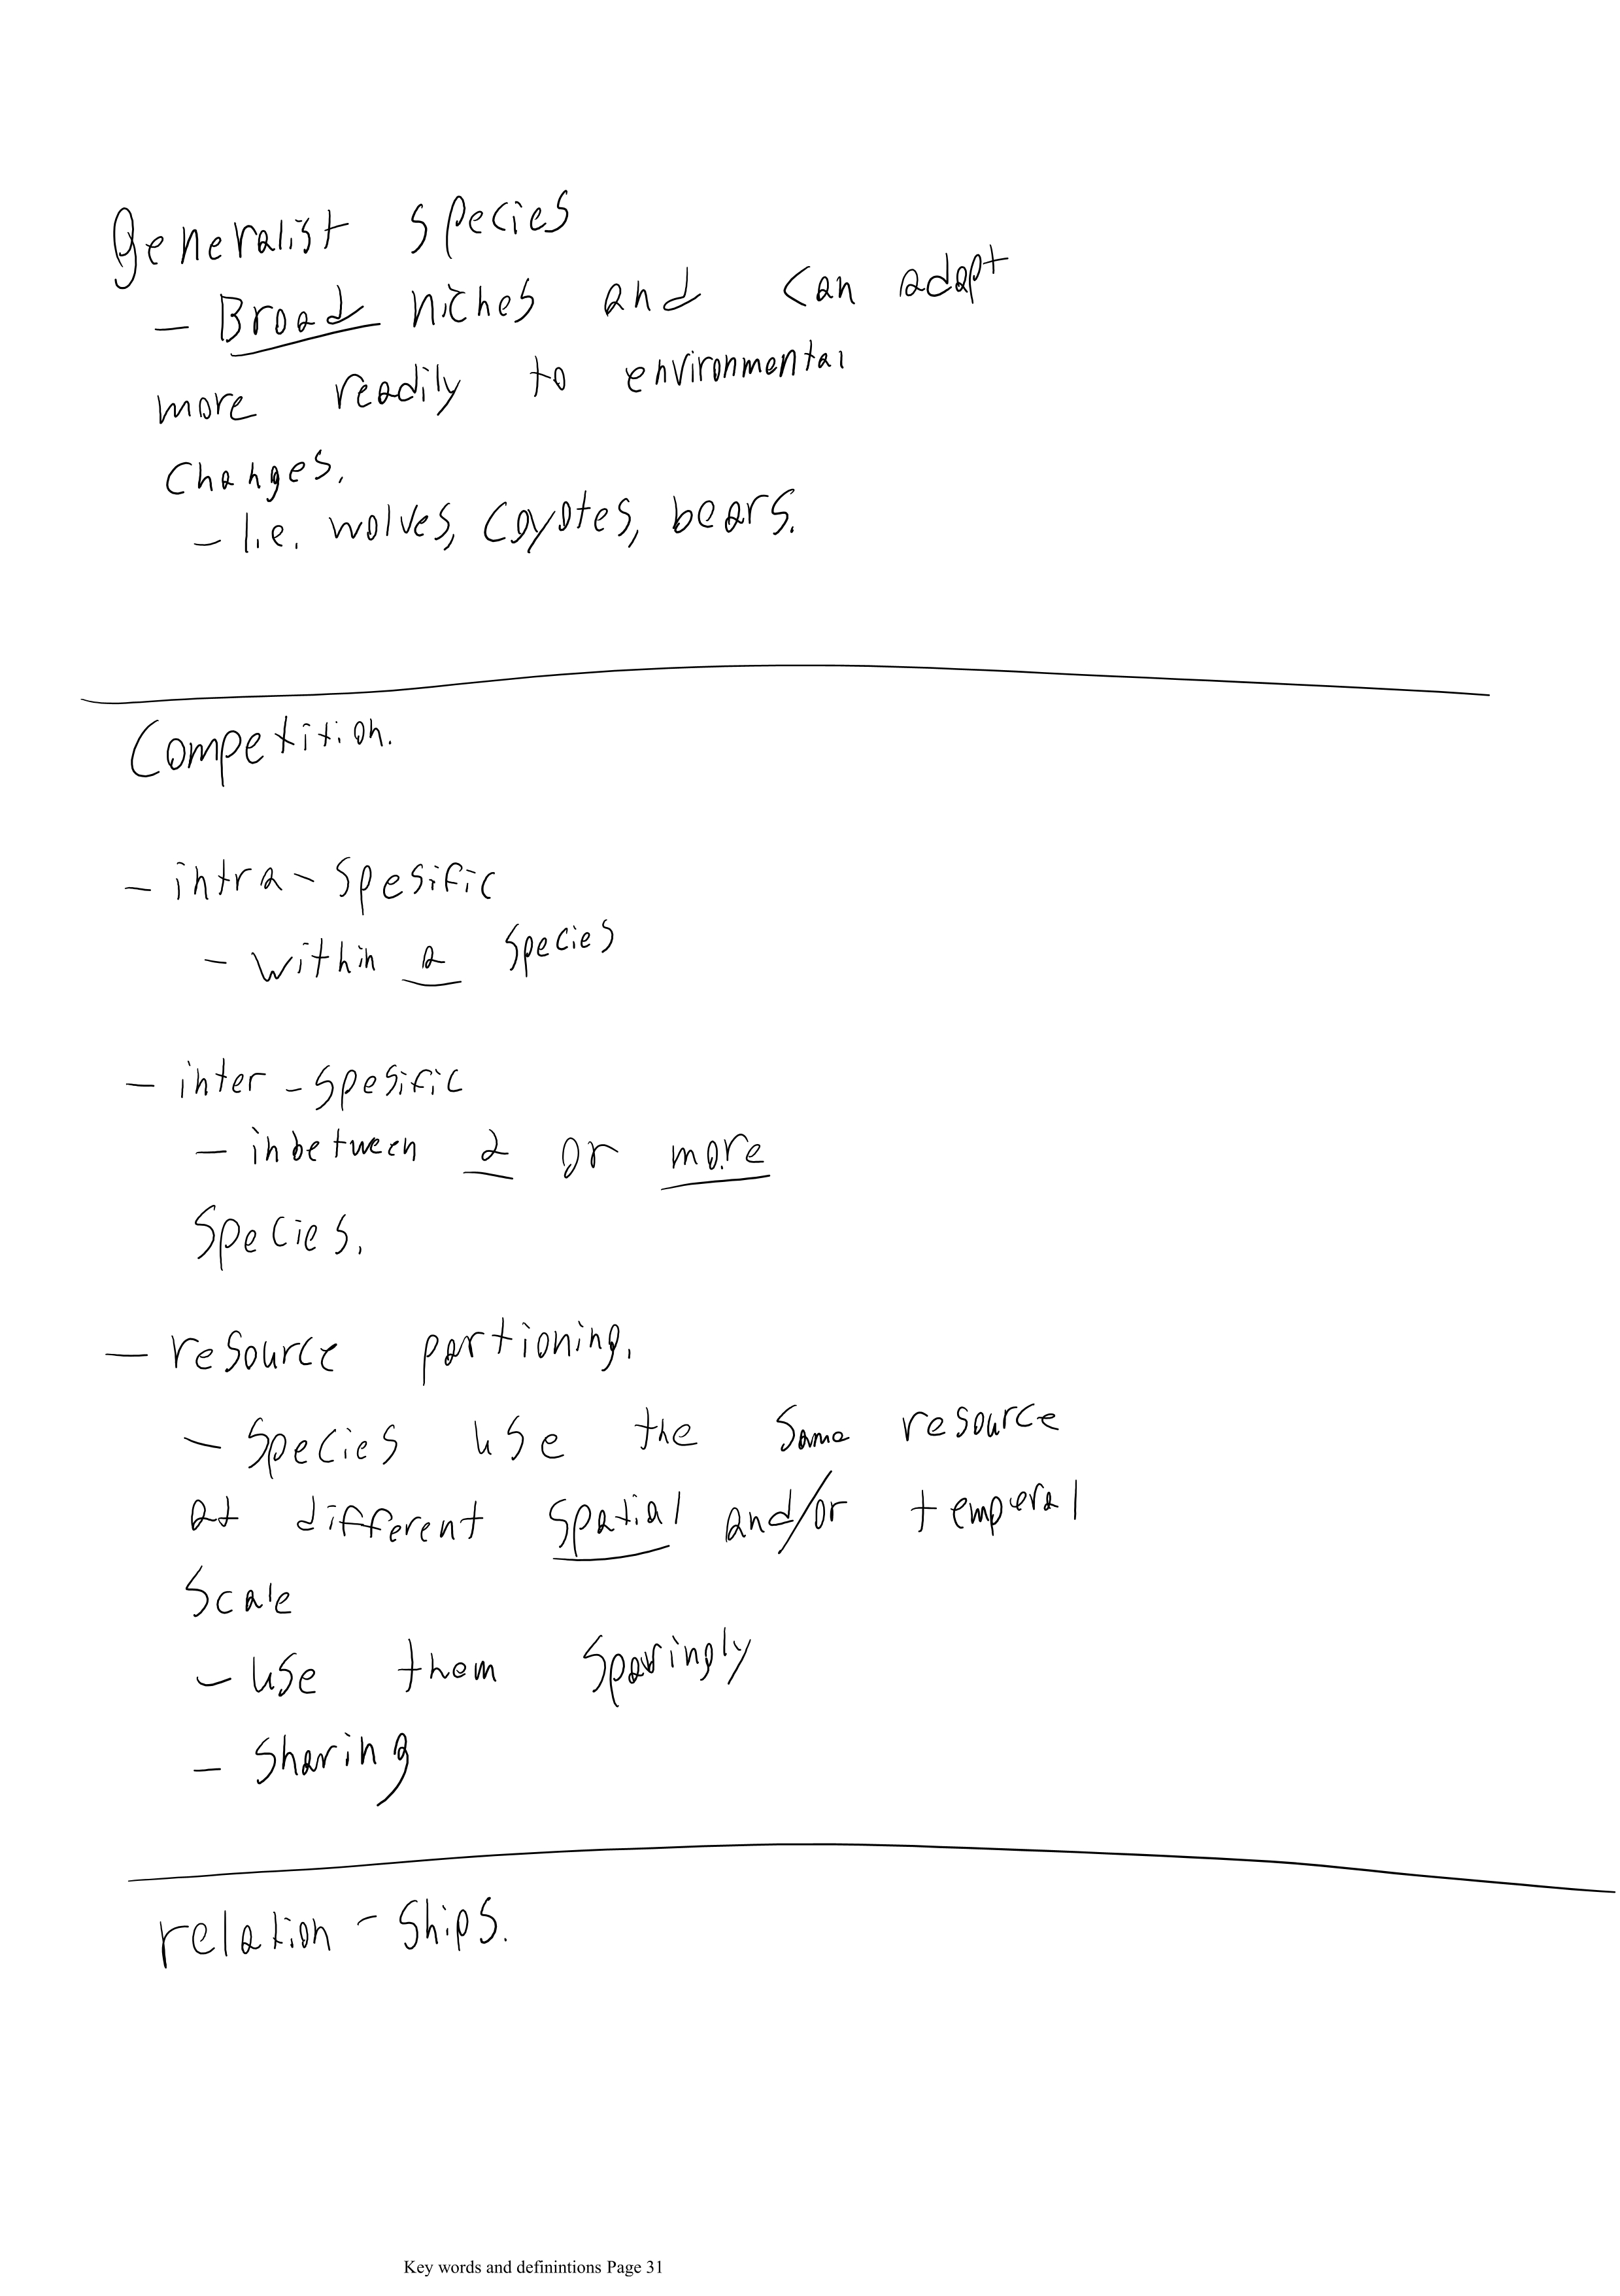 Generalist Species
- Broad niches and can adapt
more readily to environmental
Changes.
- I.e. wolves, Coyotes, bears.
Competition.
- intra - Spesific
- within a Species
- inter - Spesific
- inbetween 2 or more
Species.
- resource partioning.
- Species use the Same resource
at different Spatial and/or temperal
Scale
- Use them Sparingly
- Sharing
relation - Ships.
Key words and definintions Page 31